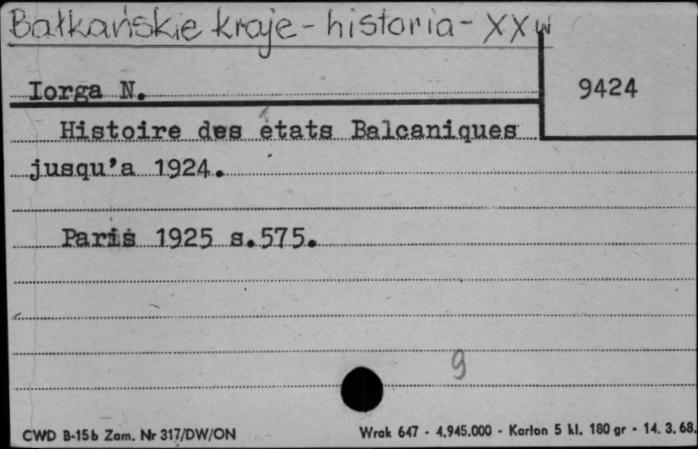 Bałkańskie kraje - historia - XX w
Iorga N.
9424
Histoire des états Balcaniques
jusqu'a 1924.
Paris 1925 s.575.
9
CWD B-15b Zam. Nr 317/DW/ON
Wrak 647 - 4.945.000 - Karton 5 kl. 180 gr - 14. 3. 68.